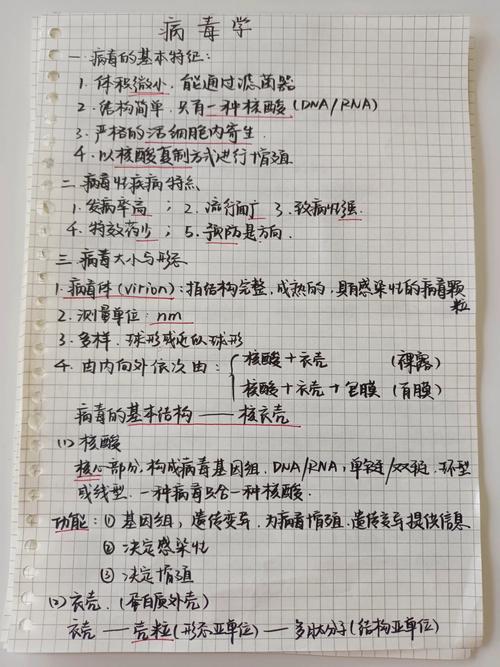 病毒学
一 病毒的基本特征：
1. 体积微小. 能通过滤菌器
2. 结构简单. 只有一种核酸(DNA/RNA)
3. 严格的活细胞内寄生.
4. 以核酸复制方式进行增殖
二 病毒性疾病特点
1. 发病率高 ; 2. 流行面广 3. 致病性强.
4. 特效药少 ; 5. 预防是方向.
三 病毒大小与形态
1. 病毒体(virion)：指结构完整，成熟的，具有感染性的病毒颗粒
2. 测量单位：nm
3. 多样. 球形或近似球形
4. 由内向外依次由： { 核酸+衣壳 (裸露)
核酸+衣壳+包膜 (有膜)
病毒的基本结构 —— 核衣壳
(1) 核酸
核心部分，构成病毒基因组. DNA/RNA，单链/双链. 环型
或线型. 一种病毒只含一种核酸.
功能：① 基因组，遗传变异. 为病毒增殖. 遗传变异提供信息
② 决定感染性
③ 决定增殖
(2) 衣壳. (蛋白质外壳)
衣壳 —— 壳粒(形态亚单位) —— 多肽分子(结构亚单位)